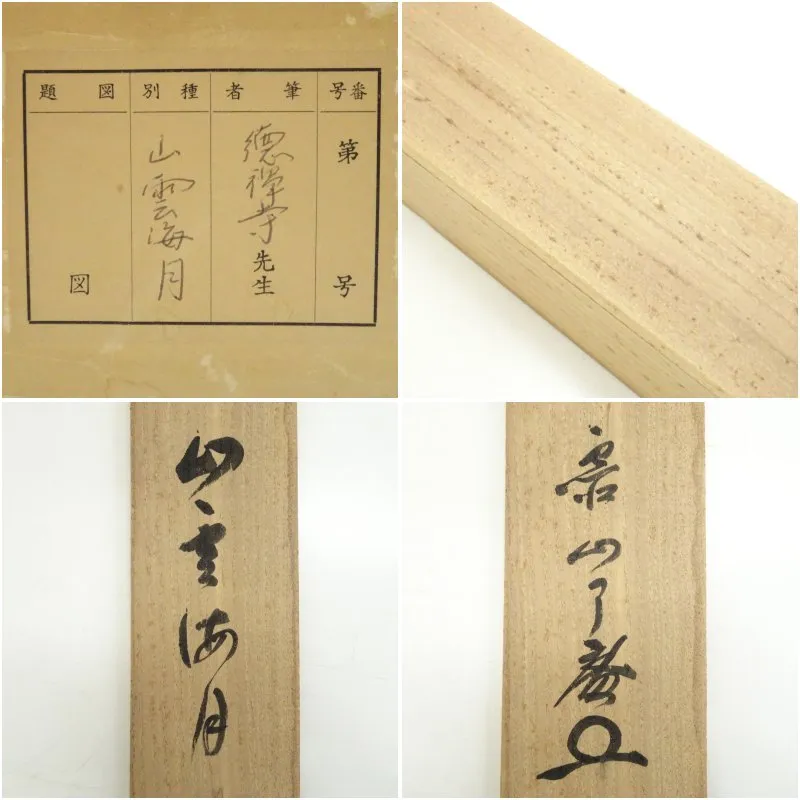 番号
第 号
筆者
徳禅寺先生
種別
山雲海月
図題
図
山雲海月
山了庵